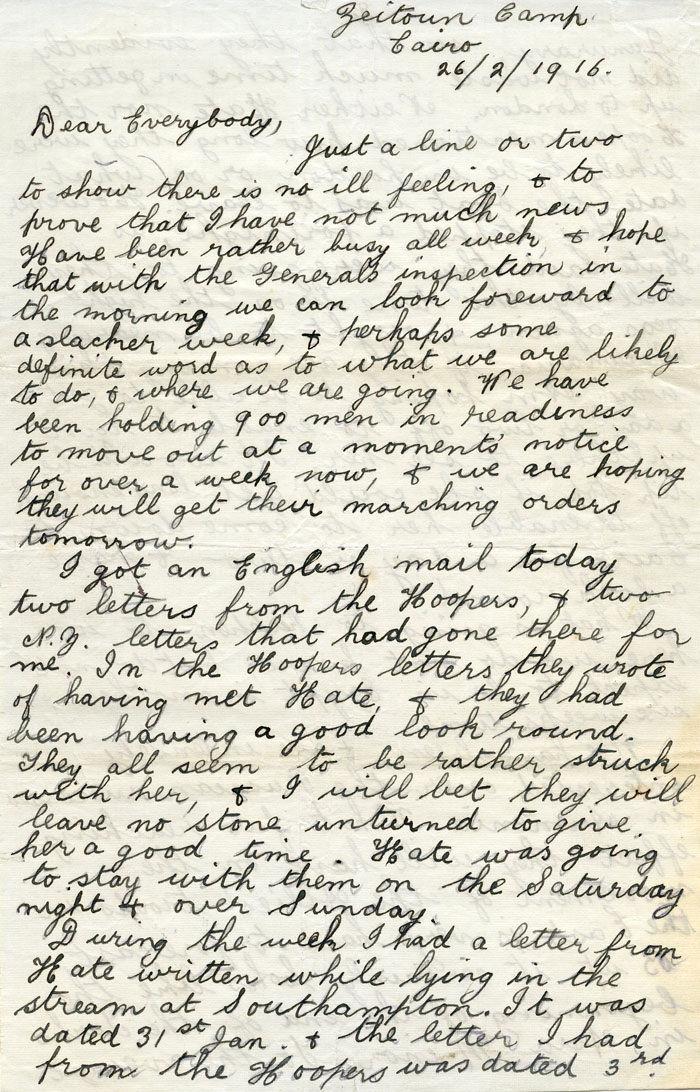 Zeitoun Camp
Cairo
26/2/1916.
Dear Everybody,
Just a line or two
to show there is no ill feeling, & to
prove that I have not much news
Have been rather busy all week, & hope
that with the General's inspection in
the morning we can look foreward to
a slacker week, & perhaps some
definite word as to what we are likely
to do, & where we are going. We have
been holding 900 men in readiness
to move out at a moments' notice
for over a week now, & we are hoping
they will get their marching orders
tomorrow.
I got an English mail today
two letters from the Hoopers, & two
N.Z. letters that had gone there for
me. In the Hoopers letters they wrote
of having met Kate, & they had
been having a good look round.
They all seem to be rather struck
with her, & I will bet they will
leave no stone unturned to give
her a good time. Kate was going
to stay with them on the Saturday
night & over Sunday.
During the week I had a letter from
Kate written while lying in the
stream at Southampton. It was
dated 31st Jan. & the letter I had
from the Hoopers was dated 3rd